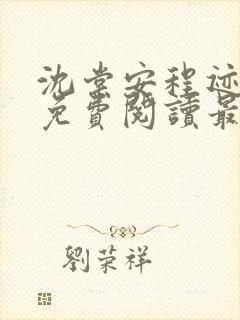 沈棠安程迹
免費閱讀最
劉荣祥